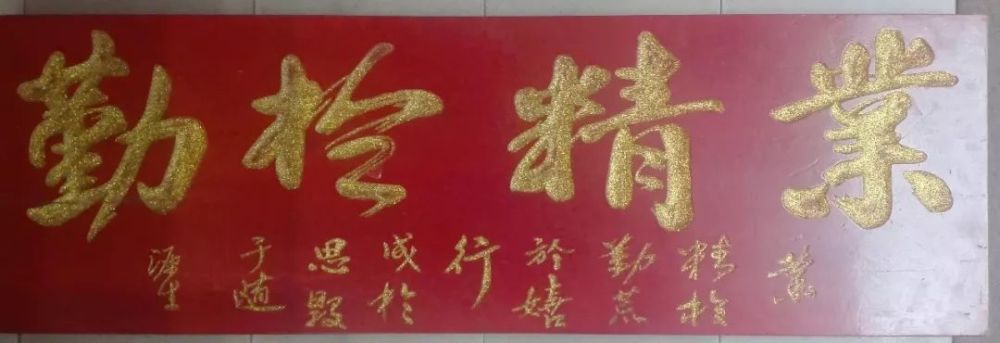 業精於勤
業
精於
勤荒
於嬉
行
成於
思毀
于随
源生